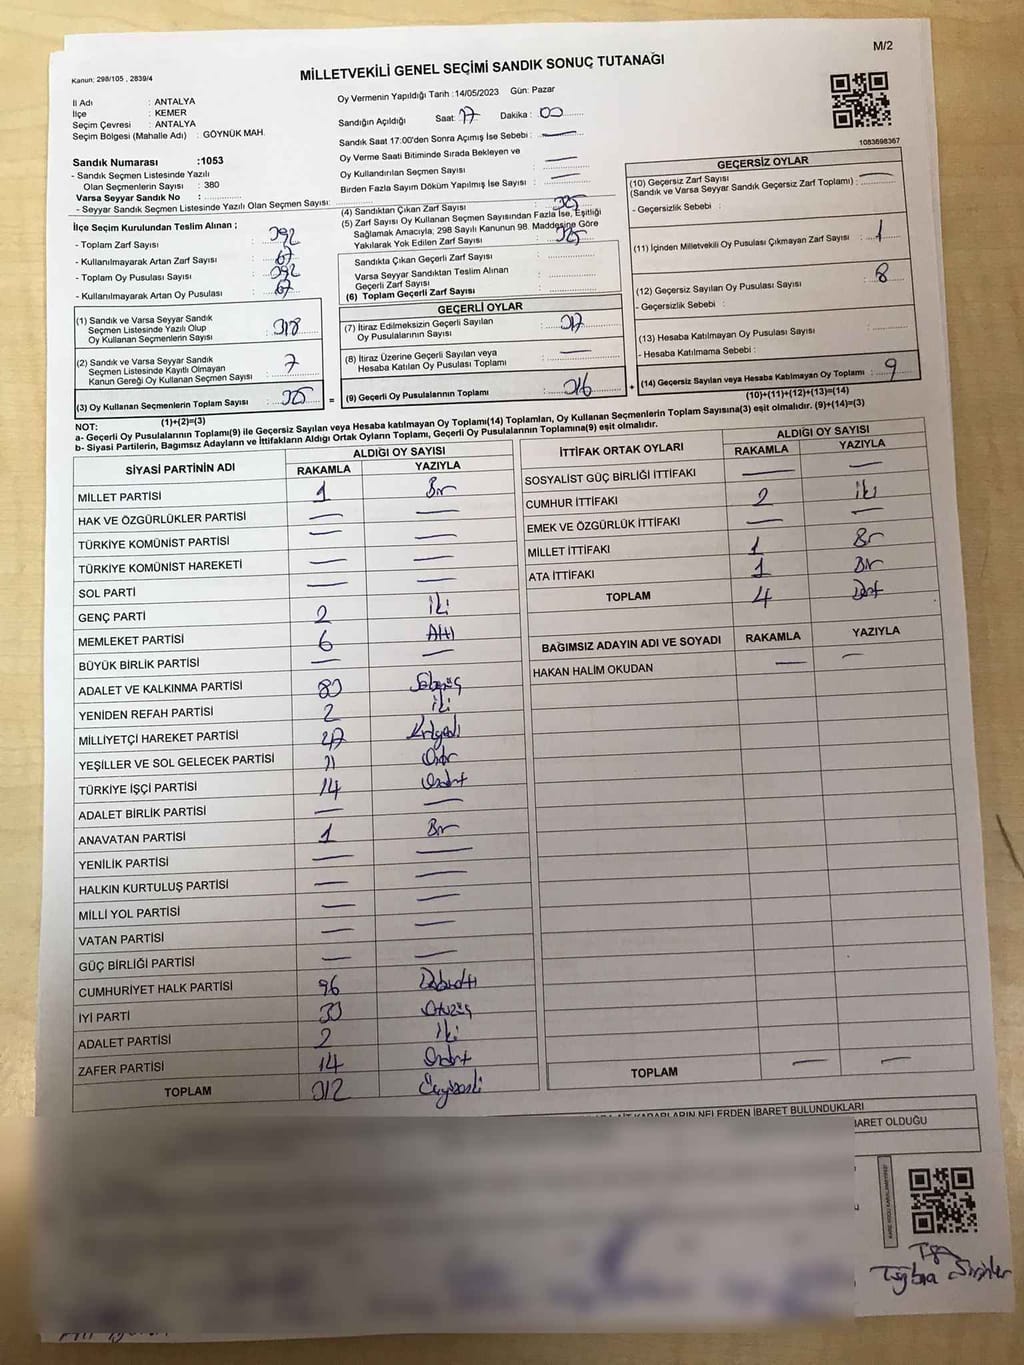 M/2
Kanun: 298/105 , 2839/4
MİLLETVEKİLİ GENEL SEÇİMİ SANDIK SONUÇ TUTANAĞI
İl Adı : ANTALYA
İlçe : KEMER
Seçim Çevresi : ANTALYA
Seçim Bölgesi (Mahalle Adı) : GÖYNÜK MAH.
Oy Vermenin Yapıldığı Tarih :14/05/2023 Gün: Pazar
Sandığın Açıldığı Saat: 17 Dakika : 00
Sandık Saat 17:00'den Sonra Açımış İse Sebebi : —
Oy Verme Saati Bitiminde Sırada Bekleyen ve
Oy Kullandırılan Seçmen Sayısı : —
Birden Fazla Sayım Döküm Yapılmış İse Sayısı : —
1083698367
Sandık Numarası :1053
- Sandık Seçmen Listesinde Yazılı
Olan Seçmenlerin Sayısı : 380
Varsa Seyyar Sandık No :
- Seyyar Sandık Seçmen Listesinde Yazılı Olan Seçmen Sayısı:
İlçe Seçim Kurulundan Teslim Alınan ;
- Toplam Zarf Sayısı : 392
- Kullanılmayarak Artan Zarf Sayısı : 67
- Toplam Oy Pusulası Sayısı : 392
- Kullanılmayarak Artan Oy Pusulası : 67
(1) Sandık ve Varsa Seyyar Sandık
Seçmen Listesinde Yazılı Olup
Oy Kullanan Seçmenlerin Sayısı : 318
(2) Sandık ve Varsa Seyyar Sandık
Seçmen Listesinde Kayıtlı Olmayan
Kanun Gereği Oy Kullanan Seçmen Sayısı : 7
(3) Oy Kullanan Seçmenlerin Toplam Sayısı : 325
(1)+(2)=(3)
(4) Sandıktan Çıkan Zarf Sayısı : 325
(5) Zarf Sayısı Oy Kullanan Seçmen Sayısından Fazla İse, Eşitliği
Sağlamak Amacıyla, 298 Sayılı Kanunun 98. Maddesine Göre
Yakılarak Yok Edilen Zarf Sayısı : 325
Sandıkta Çıkan Geçerli Zarf Sayısı :
Varsa Seyyar Sandıktan Teslim Alınan
Geçerli Zarf Sayısı :
(6) Toplam Geçerli Zarf Sayısı :
GEÇERLİ OYLAR
(7) İtiraz Edilmeksizin Geçerli Sayılan
Oy Pusulalarının Sayısı : 317
(8) İtiraz Üzerine Geçerli Sayılan veya
Hesaba Katılan Oy Pusulası Toplamı : —
= (9) Geçerli Oy Pusulalarının Toplamı : 316 +
GEÇERSİZ OYLAR
(10) Geçersiz Zarf Sayısı
(Sandık ve Varsa Seyyar Sandık Geçersiz Zarf Toplamı) : —
- Geçersizlik Sebebi :
(11) İçinden Milletvekili Oy Pusulası Çıkmayan Zarf Sayısı : 1
(12) Geçersiz Sayılan Oy Pusulası Sayısı : 8
- Geçersizlik Sebebi :
(13) Hesaba Katılmayan Oy Pusulası Sayısı :
- Hesaba Katılmama Sebebi :
(14) Geçersiz Sayılan veya Hesaba Katılmayan Oy Toplamı : 9
(10)+(11)+(12)+(13)=(14)
NOT:
a- Geçerli Oy Pusulalarının Toplamı(9) ile Geçersiz Sayılan veya Hesaba katılmayan Oy Toplamı(14) Toplamları, Oy Kullanan Seçmenlerin Toplam Sayısına(3) eşit olmalıdır. (9)+(14)=(3)
b- Siyasi Partilerin, Bağımsız Adayların ve İttifakların Aldığı Ortak Oyların Toplamı, Geçerli Oy Pusulalarının Toplamına(9) eşit olmalıdır.
SİYASİ PARTİNİN ADI ALDIĞI OY SAYISI
RAKAMLA YAZIYLA
MİLLET PARTİSİ 1 Bir
HAK VE ÖZGÜRLÜKLER PARTİSİ — —
TÜRKİYE KOMÜNİST PARTİSİ — —
TÜRKİYE KOMÜNİST HAREKETİ — —
SOL PARTİ — —
GENÇ PARTİ 2 İki
MEMLEKET PARTİSİ 6 Altı
BÜYÜK BİRLİK PARTİSİ — —
ADALET VE KALKINMA PARTİSİ 83 Seksenüç
YENİDEN REFAH PARTİSİ 2 İki
MİLLİYETÇİ HAREKET PARTİSİ 47 Kırkyedi
YEŞİLLER VE SOL GELECEK PARTİSİ 11 Onbir
TÜRKİYE İŞÇİ PARTİSİ 14 Ondört
ADALET BİRLİK PARTİSİ — —
ANAVATAN PARTİSİ 1 Bir
YENİLİK PARTİSİ — —
HALKIN KURTULUŞ PARTİSİ — —
MİLLİ YOL PARTİSİ — —
VATAN PARTİSİ — —
GÜÇ BİRLİĞİ PARTİSİ — —
CUMHURİYET HALK PARTİSİ 96 Doksanaltı
İYİ PARTİ 33 Otuzüç
ADALET PARTİSİ 2 İki
ZAFER PARTİSİ 14 Ondört
TOPLAM 312
İTTİFAK ORTAK OYLARI ALDIĞI OY SAYISI
RAKAMLA YAZIYLA
SOSYALİST GÜÇ BİRLİĞİ İTTİFAKI — —
CUMHUR İTTİFAKI 2 İki
EMEK VE ÖZGÜRLÜK İTTİFAKI — —
MİLLET İTTİFAKI 1 Bir
ATA İTTİFAKI 1 Bir
TOPLAM 4 Dört
BAĞIMSIZ ADAYIN ADI VE SOYADI RAKAMLA YAZIYLA
HAKAN HALİM OKUDAN — —
TOPLAM — —
NELERDEN İBARET BULUNDUKLARI
BARET OLDUĞU